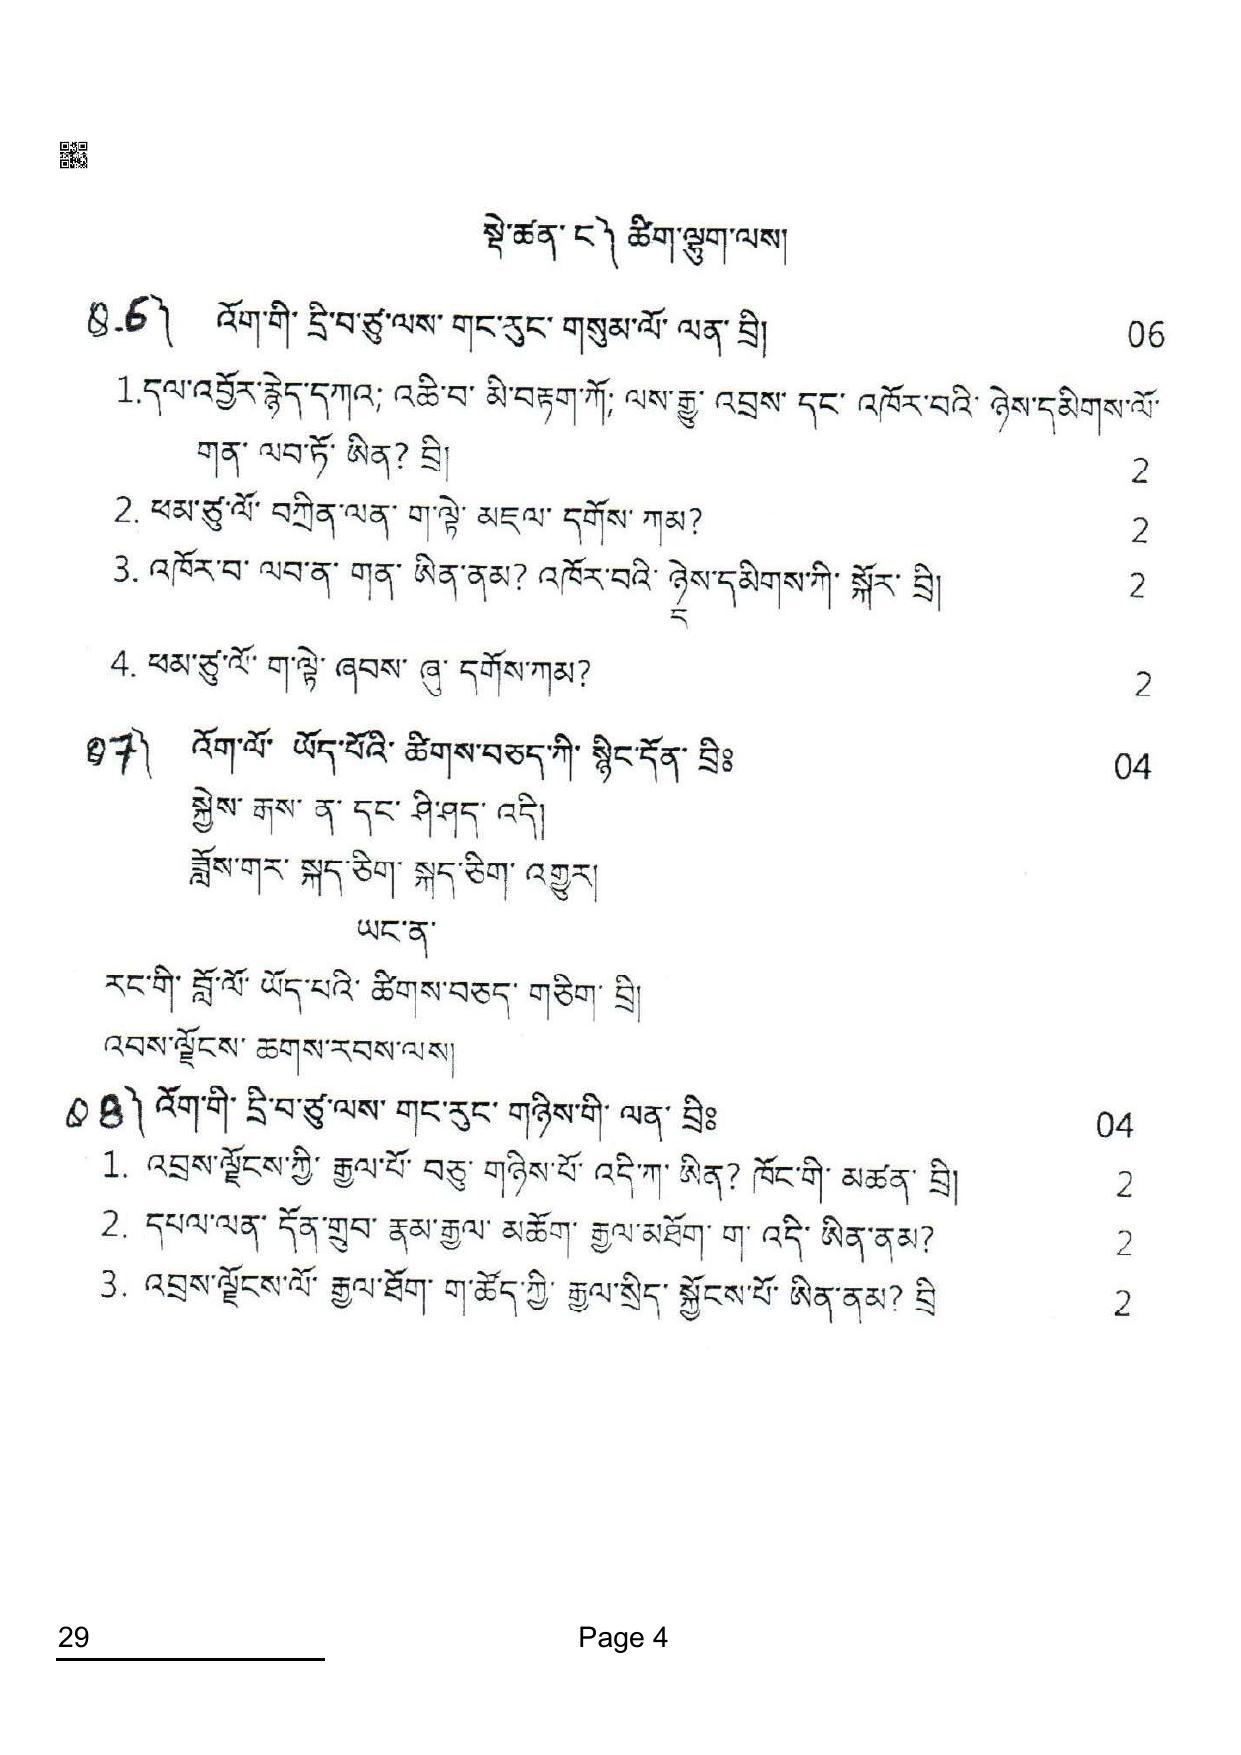 སྡེ་ཚན་ ང༽ ཚིག་ལྷུག་ལས།
Q.6༽ འོག་གི་ དྲི་བ་ཙུ་ལས་ གང་རུང་ གསུམ་ལོ་ ལན་ བྲི། 06
1.དལ་འབྱོར་རྙེད་དཀའ; འཆི་བ་ མི་བརྟག་ཀོ; ལས་རྒྱུ་ འབྲས་ དང་ འཁོར་བའི་ ཉེས་དམིགས་ལོ་
གན་ ལབ་ཏོ་ ཨིན? བྲི། 2
2. ཕམ་ཙུ་ལོ་ བཀྲིན་ལན་ ག་ལྟེ་ མཇལ་ དགོས་ ཀམ? 2
3. འཁོར་བ་ ལབ་ན་ གན་ ཨིན་ནམ? འཁོར་བའི་ ཉེས་དམིགས་ཀི་ སྐོར་ བྲི། 2
4. ཕམ་ཙུ་ལོ་ ག་ལྟེ་ ཞབས་ ཞུ་ དགོས་ཀམ? 2
Q7༽ འོག་ལོ་ ཡོད་པོའི་ ཚིགས་བཅད་ཀི་ སྙིང་དོན་ བྲིཿ 04
སྐྱེས་ རྒས་ ན་ དང་ ཤི་ཤད་ འདི།
ཟློས་གར་ སྐད་ཅིག་ སྐད་ཅིག་ འགྱུར།
ཡང་ན་
རང་གི་ བློ་ལོ་ ཡོད་པའི་ ཚིགས་བཅད་ གཅིག་ བྲི།
འབས་ལྗོངས་ ཆགས་རབས་ལས།
Q8༽ འོག་གི་ དྲི་བ་ཙུ་ལས་ གང་རུང་ གཉིས་གི་ ལན་ བྲིཿ 04
1. འབྲས་ལྗོངས་ཀྱི་ རྒྱལ་པོ་ བཅུ་ གཉིས་པོ་ འདི་ཀ་ ཨིན? ཁོང་གི་ མཚན་ བྲི། 2
2. དཔལ་ལན་ དོན་གྲུབ་ རྣམ་རྒྱལ་ མཆོག་ རྒྱལ་མཐོག་ ག་ འདི་ ཨིན་ནམ? 2
3. འབྲས་ལྗོངས་ལོ་ རྒྱལ་ཐོག་ ག་ཚོད་ཀྱི་ རྒྱལ་སྲིད་ སྐྱོངས་པོ་ ཨིན་ནམ? བྲི 2
29 Page 4